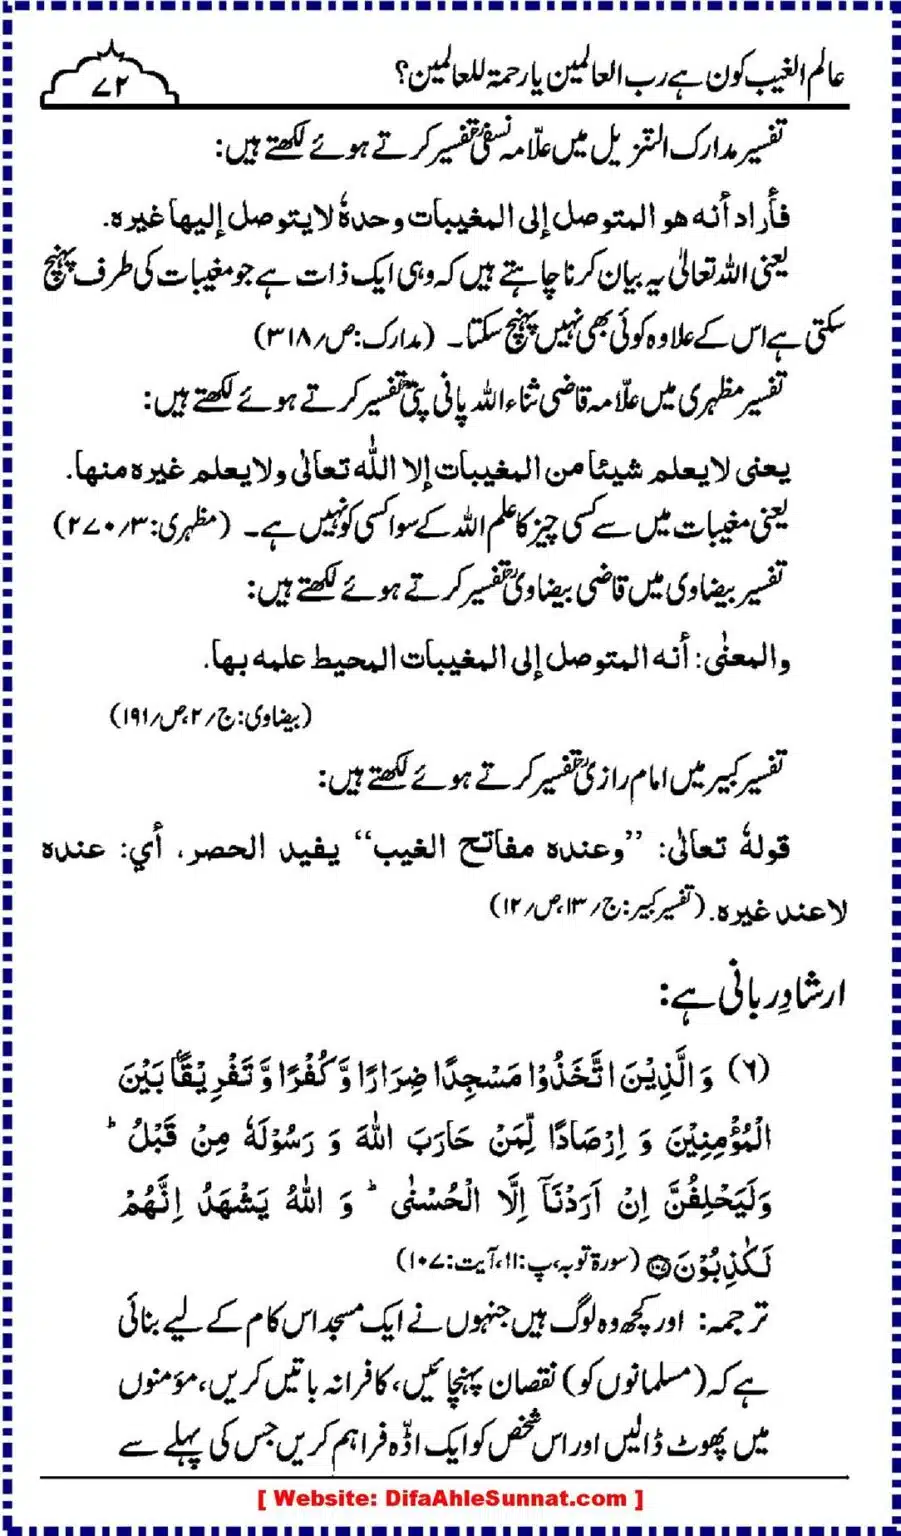 عالم الغیب کون ہے رب العالمین یا رحمۃ للعالمین؟
۷۲
تفسیر مدارک التنزیل میں علّامہ نسفیؒ تفسیر کرتے ہوئے لکھتے ہیں:
فأراد أنه هو المتوصل إلى المغيبات وحدهٗ لا يتوصل إليها غيره.
یعنی اللہ تعالیٰ یہ بیان کرنا چاہتے ہیں کہ وہی ایک ذات ہے جو مغیبات کی طرف پہنچ
سکتی ہے اس کے علاوہ کوئی بھی نہیں پہنچ سکتا۔ (مدارک:ص/۳۱۸)
تفسیر مظہری میں علّامہ قاضی ثناء اللہ پانی پتیؒ تفسیر کرتے ہوئے لکھتے ہیں:
يعنى لا يعلم شيئا من المغيبات إلا الله تعالىٰ ولا يعلم غيره منها.
یعنی مغیبات میں سے کسی چیز کا علم اللہ کے سوا کسی کو نہیں ہے۔ (مظہری:۲۷۰/۳)
تفسیر بیضاوی میں قاضی بیضاویؒ تفسیر کرتے ہوئے لکھتے ہیں:
والمعنٰى: أنه المتوصل إلى المغيبات المحيط علمه بها.
(بیضاوی:ج/۲،ص/۱۹۱)
تفسیر کبیر میں امام رازیؒ تفسیر کرتے ہوئے لکھتے ہیں:
قولهٗ تعالىٰ: ’’وعنده مفاتح الغيب‘‘ يفيد الحصر، أي: عنده
لا عند غيره. (تفسیر کبیر:ج/۱۳،ص/۱۲)
ارشادِ ربانی ہے:
(۶) وَالَّذِیْنَ اتَّخَذُوْا مَسْجِدًا ضِرَارًا وَّ كُفْرًا وَّ تَفْرِیْقًۢا بَیْنَ
الْمُؤْمِنِیْنَ وَ اِرْصَادًا لِّمَنْ حَارَبَ اللّٰهَ وَ رَسُوْلَهٗ مِنْ قَبْلُ ؕ
وَلَیَحْلِفُنَّ اِنْ اَرَدْنَاۤ اِلَّا الْحُسْنٰى ؕ وَ اللّٰهُ یَشْهَدُ اِنَّهُمْ
لَكٰذِبُوْنَ ﴿۱۰۷﴾ (سورۃ توبہ، پ:۱۱،آیت:۱۰۷)
ترجمہ: اور کچھ وہ لوگ ہیں جنہوں نے ایک مسجد اس کام کے لیے بنائی
ہے کہ (مسلمانوں کو) نقصان پہنچائیں، کافرانہ باتیں کریں، مؤمنوں
میں پھوٹ ڈالیں اور اس شخص کو ایک اڈّہ فراہم کریں جس کی پہلے سے
[ Website: DifaAhleSunnat.com ]